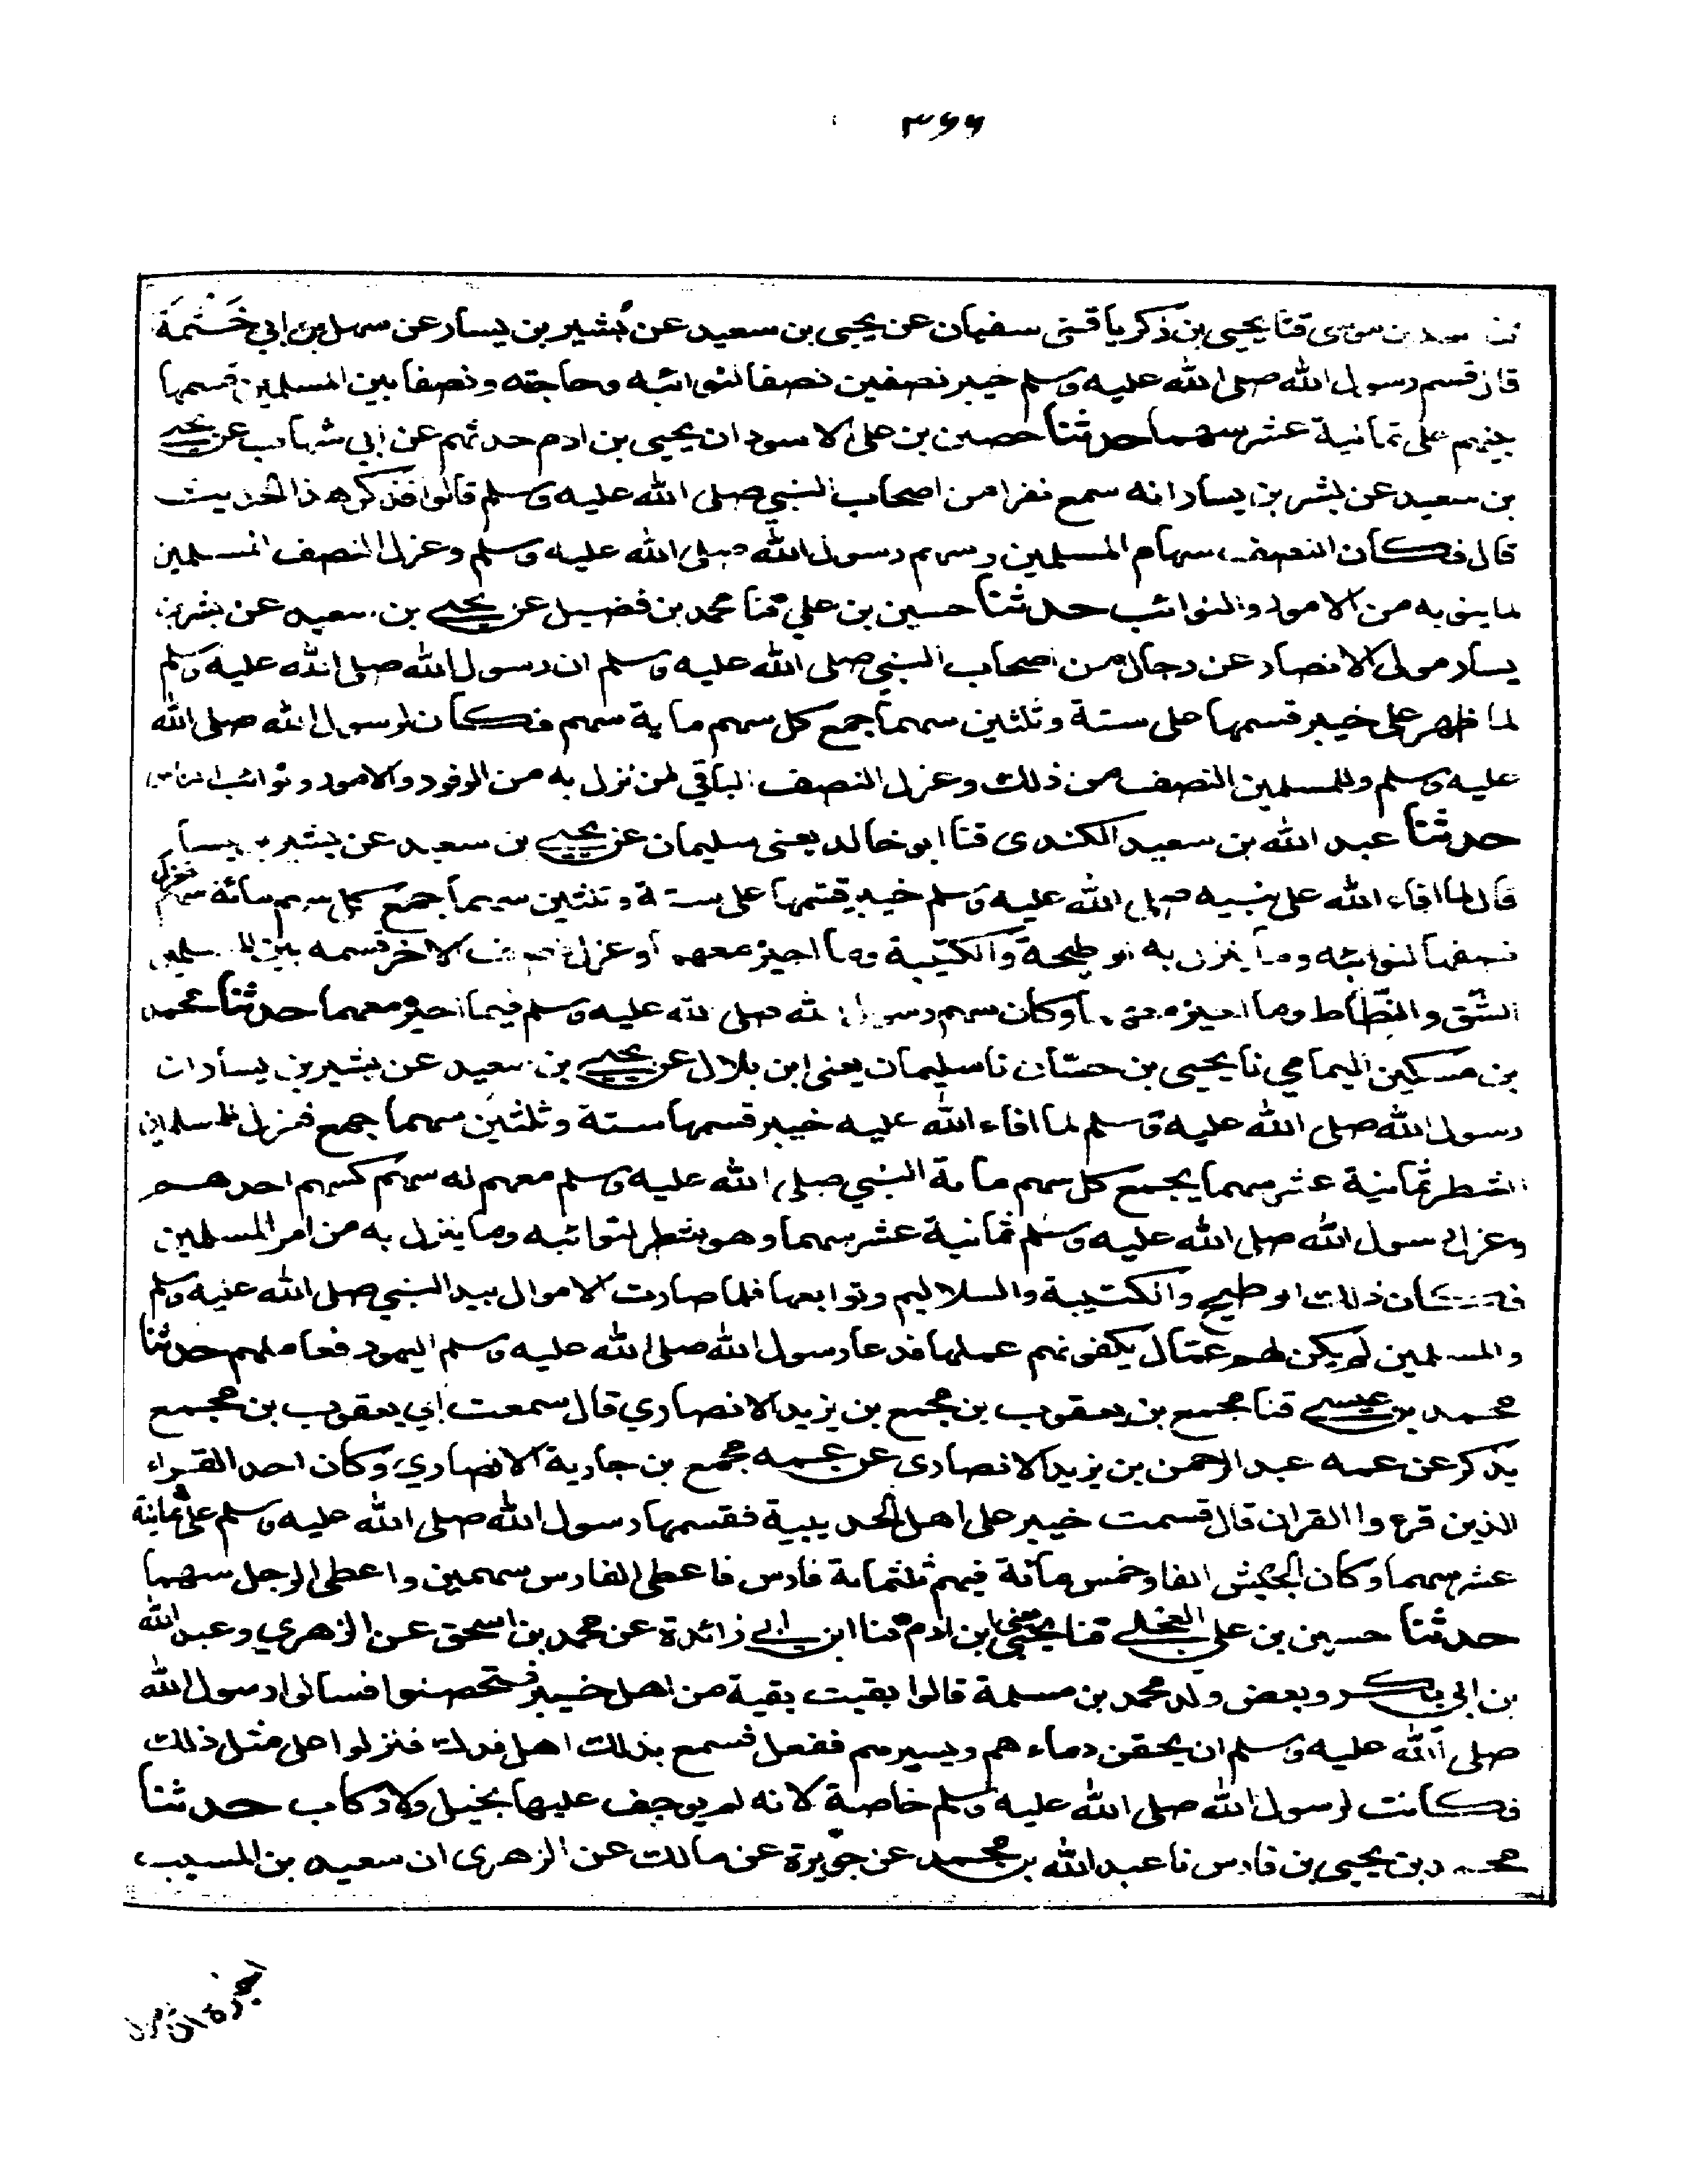 ٣٦٦
بن موسى قثنا يحيى بن ذكريا قثنى سفيان عن يحيى بن سعيد عن بُشير بن يسار عن سهل بن ابي خَثمَة
قال قسم رسول الله صلى الله عليه وسلم خيبر نصفين نصفا لنوائبه وحاجته ونصفا بين المسلمين قسمها
بينهم على ثمانية عشر سهما حدثنا حصين بن على الاسود ان يحيى بن ادم حدثهم عن ابي شهاب عن يحيى
بن سعيد عن بشر بن يسار انه سمع نفرا من اصحاب النبي صلى الله عليه وسلم قالوا فذكر هذا الحديث
قال فكان النصف سهام المسلمين وسهم رسول الله صلى الله عليه وسلم وعزل النصف المسلمين
لما ينوبه من الامور والنوائب حدثنا حسين بن علي قثنا محمد بن فضيل عن يحيى بن سعيد عن بشر بن
يسار مولى الانصار عن رجال من اصحاب النبي صلى الله عليه وسلم ان رسول الله صلى الله عليه وسلم
لما ظهر على خيبر قسمها على ستة وثلثين سهماً جمع كل سهم ماية سهم فكان لرسول الله صلى الله
عليه وسلم وللمسلمين النصف من ذلك وعزل النصف الباقي لمن نزل به من الوفود والامور ونوائب الناس
حدثنا عبد الله بن سعيد الكندى قثنا ابو خالد يعنى سليمان عن يحيى بن سعيد عن بشير بن يسار
قال لما افاء الله على نبيه صلى الله عليه وسلم خيبر قسمها على ستة وثلثين سهماً جمع كل سهم مائة سهم فعزل
نصفها لنوائبه وما ينزل به الوطيحة والكتيبة وما احيز معهما وعزل نصف الاخر قسمه بين المسلمين
الشّق والنّطاط وما احيز معهما وكان سهم رسول الله صلى الله عليه وسلم فيما احيز معهما حدثنا محمد
بن مسكين اليمامي نا يحيى بن حسّان نا سليمان يعنى ابن بلال عن يحيى بن سعيد عن بشير بن يسار ان
رسول الله صلى الله عليه وسلم لما افاء الله عليه خيبر قسمها ستة وثلثين سهما جمع فعزل للمسلمين
الشطر ثمانية عشر سهما يجمع كل سهم مائة النبي صلى الله عليه وسلم معهم له سهم كسهم احدهم
وعزل رسول الله صلى الله عليه وسلم ثمانية عشر سهما وهو شطر لنوائبه وما ينزل به من امر المسلمين
فكان ذلك الوطيح والكتيبة والسلاليم وتوابعها فلما صارت الاموال بيد النبي صلى الله عليه وسلم
والمسلمين لم يكن لهم عمّال يكفونهم عملها فدعا رسول الله صلى الله عليه وسلم اليهود فعاملهم حدثنا
محمد بن عيسى قثنا مجمع بن يعقوب بن مجمع بن يزيد الانصاري قال سمعت ابي يعقوب بن مجمع
يذكر عن عمه عبد الرحمن بن يزيد الانصارى عن عمه مجمع بن جارية الانصاري وكان احد القراء
الذين قرءوا القران قال قسمت خيبر على اهل الحديبية فقسمها رسول الله صلى الله عليه وسلم على ثمانية
عشر سهما وكان الجيش الفا وخمس مائة فيهم ثلثمائة فارس فاعطى الفارس سهمين واعطى الرجل سهما
حدثنا حسين بن على العجلى قثنا يحيى يعنى ابن ادم قثنا ابن ابى زائدة عن محمد بن اسحق عن الزهري وعبد الله
بن ابى بكر وبعض ولد محمد بن مسلمة قالوا بقيت بقية من اهل خيبر فتحصنوا فسالوا رسول الله
صلى الله عليه وسلم ان يحقن دماءهم ويسيرهم ففعل فسمع بذلك اهل فدك فنزلوا على مثل ذلك
فكانت لرسول الله صلى الله عليه وسلم خاصة لانه لم يوجف عليها بخيل ولا ركاب حدثنا
محمد بن يحيى بن فارس نا عبد الله بن محمد عن جويرة عن مالك عن الزهرى ان سعيد بن المسيب